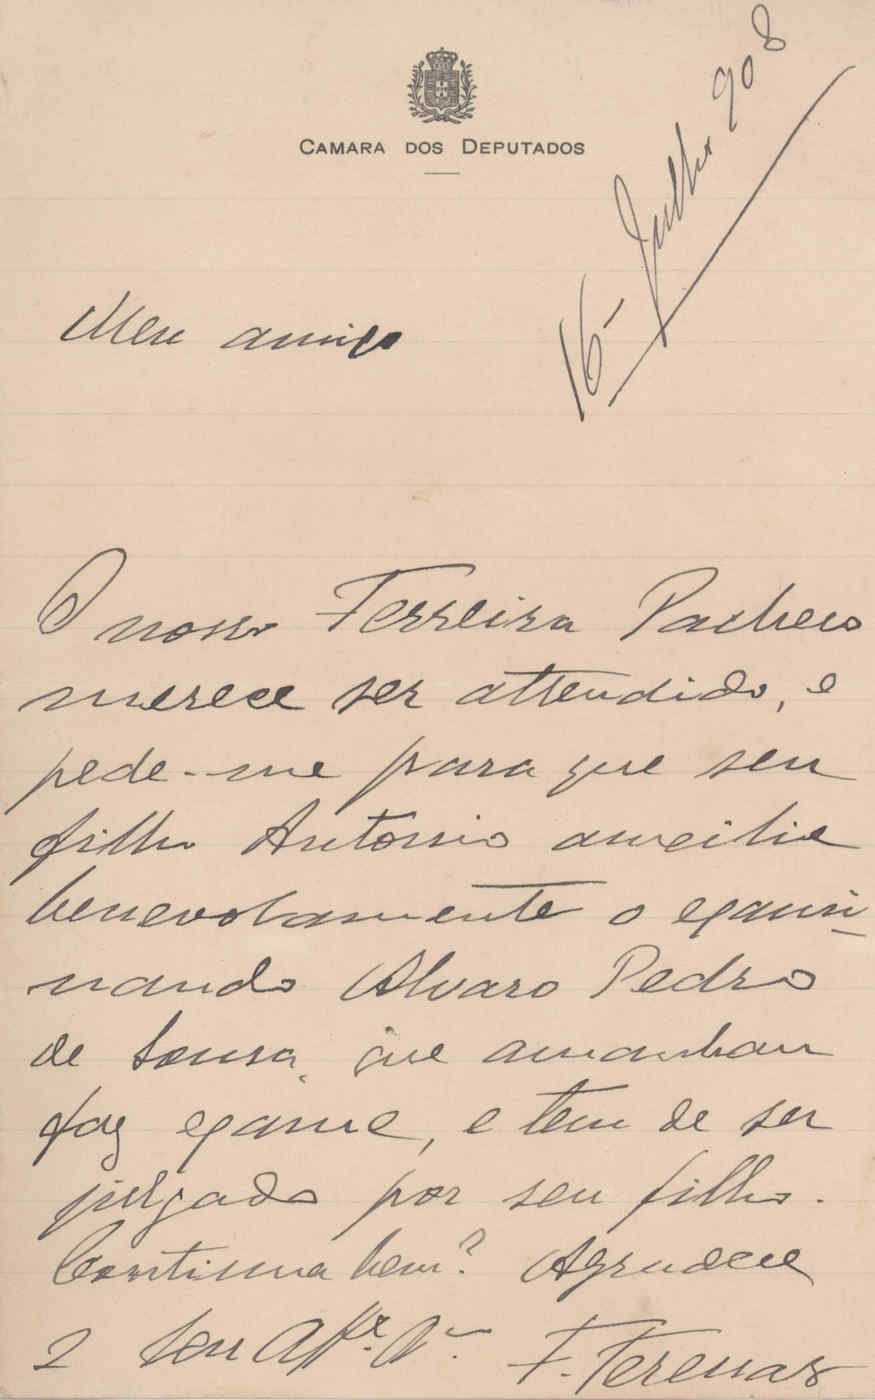 CAMARA DOS DEPUTADOS
16-Julho 908
Meu amigo
O nosso Ferreira Pacheco
merece ser attendido, e
pede-me para que seu
filho Antonio auxilie
benevolamente o exami-
nando Alvaro Pedro
de Sousa, que amanhan
faz exame, e tem de ser
julgado por seu filho.
Continua bem? Agradece
o seu Aff.º A.º F. Terenas